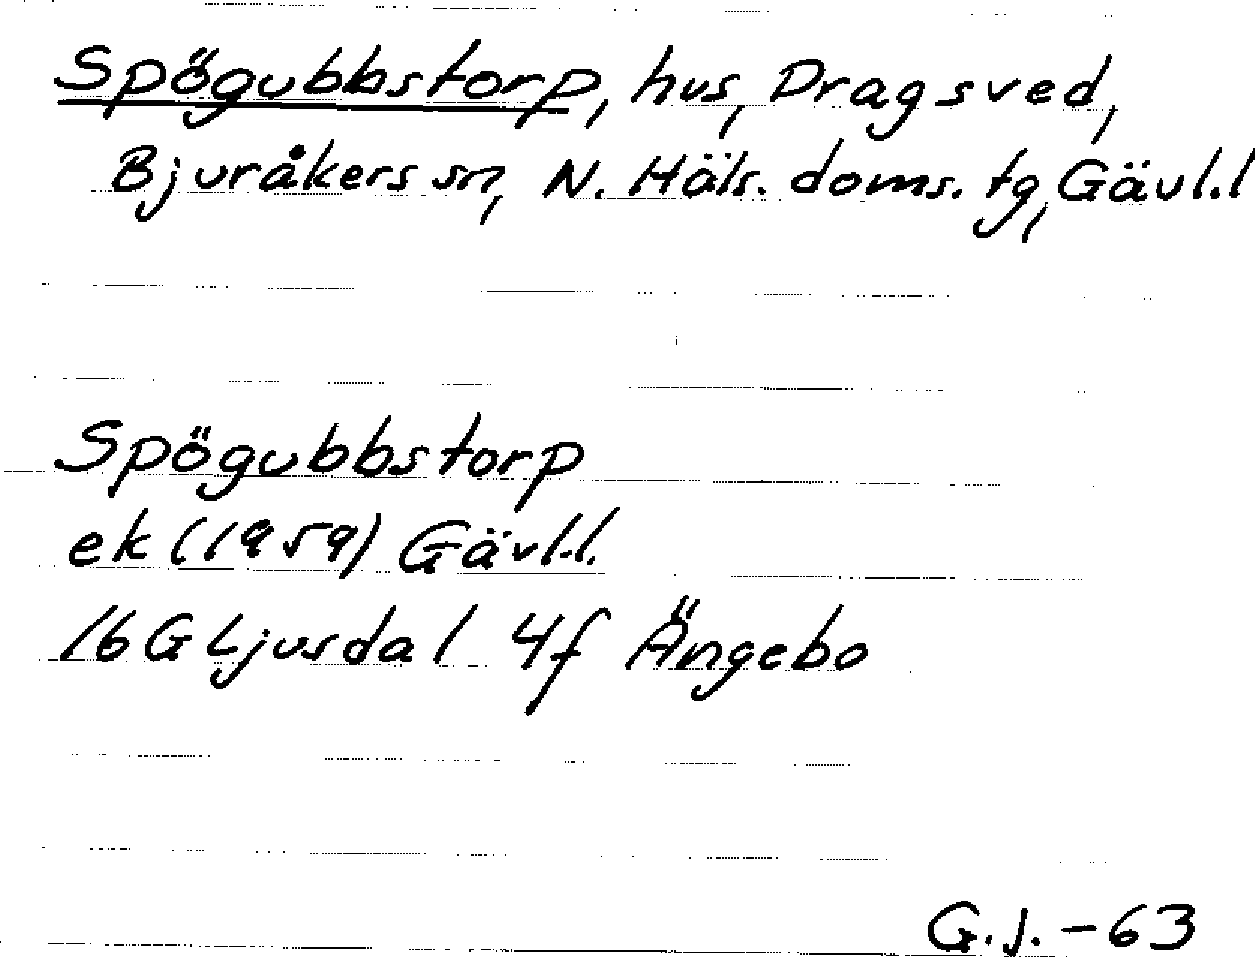 Spögubbstorp, hus, Dragsved,
Bjuråkers sn, N. Häls. doms. tg, Gävl.l
Spögubbstorp
ek (1959) Gävl.l.
16G Ljusdal 4f Ängebo
G.J.-63